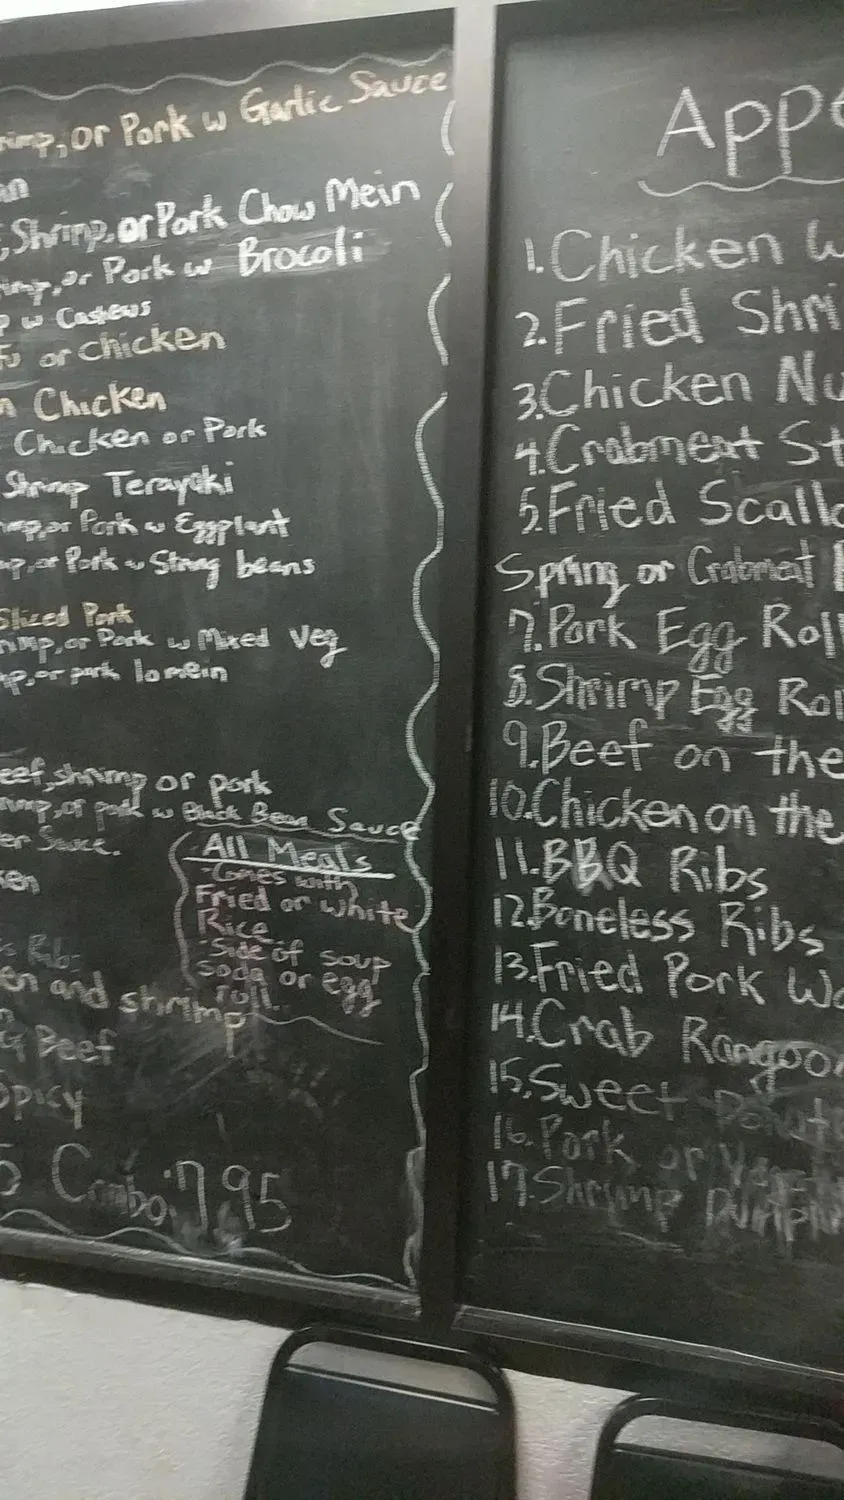 rimp, or Pork w Garlic Sauce
an
, Shrimp, or Pork Chow Mein
imp, or Pork w Brocoli
p w Cashews
fu or chicken
n Chicken
Chicken or Pork
Shrimp Terayaki
imp, or Pork w Eggplant
mp, or Pork w String beans
Sliced Pork
rimp, or Pork w Mixed Veg
mp, or pork lo mein
eef, shrimp or pork
rimp, or pork w Black Bean Sauce
er Sauce.
ken
Ribs
en and shrimp
n
G Beef
Spicy
Combo: 7.95
All Meals
-Comes with
Fried or white
Rice
-Side of soup
soda or egg
roll.
Appe
1. Chicken W
2. Fried Shri
3. Chicken Nu
4. Crabmeat St
5. Fried Scallo
Spring or Crabmeat
7. Pork Egg Roll
8. Shrimp Egg Rol
9. Beef on the
10. Chicken on the
11. BBQ Ribs
12. Boneless Ribs
13. Fried Pork Wo
14. Crab Rangoon
15. Sweet Donuts
16. Pork or Vege
17. Shrimp Dumpl